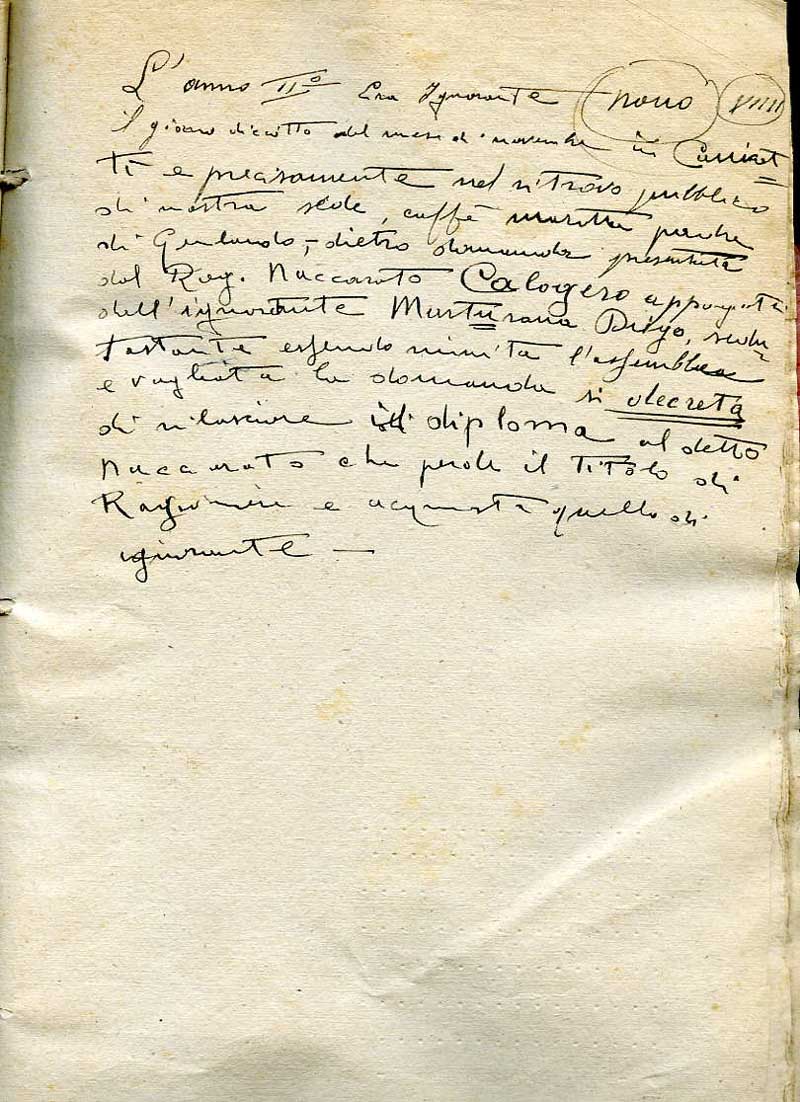 L'anno IIº Era Ignorante nono VIIII
il giorno diciotto del mese di novembre in Canicat=
tì e precisamente nel ritrovo pubblico
di nostra sede, caffè
di Gerlando, dietro domanda presentata
dal Rag. Naccarato Calogero
dell'ignorante Marturana Diego, sedu=
tastante essendo riunita l'assemblea
e vagliata la domanda si decreta
di rilasciare il diploma al detto
Naccarato che perde il titolo di
Ragioniere e acquista quello di
ignorante —